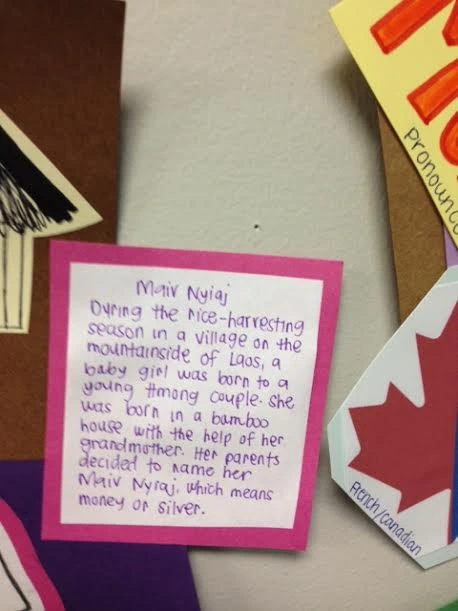 Maiv Nyiaj
During the rice-harvesting
season in a village on the
mountainside of Laos, a
baby girl was born to a
young Hmong couple. She
was born in a bamboo
house with the help of her
grandmother. Her parents
decided to name her
Maiv Nyiaj, which means
money or silver.
French/Canadian